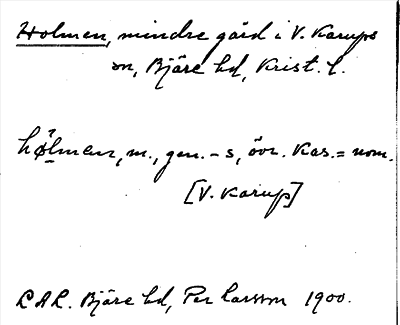 Holmen, mindre gård i V. Karups
sn, Bjäre hd, Krist. l.
hø̀lmen, m., gen. -s, övr. kas. = nom.
[V. Karup]
LAL. Bjäre hd, Per Larsson 1900.